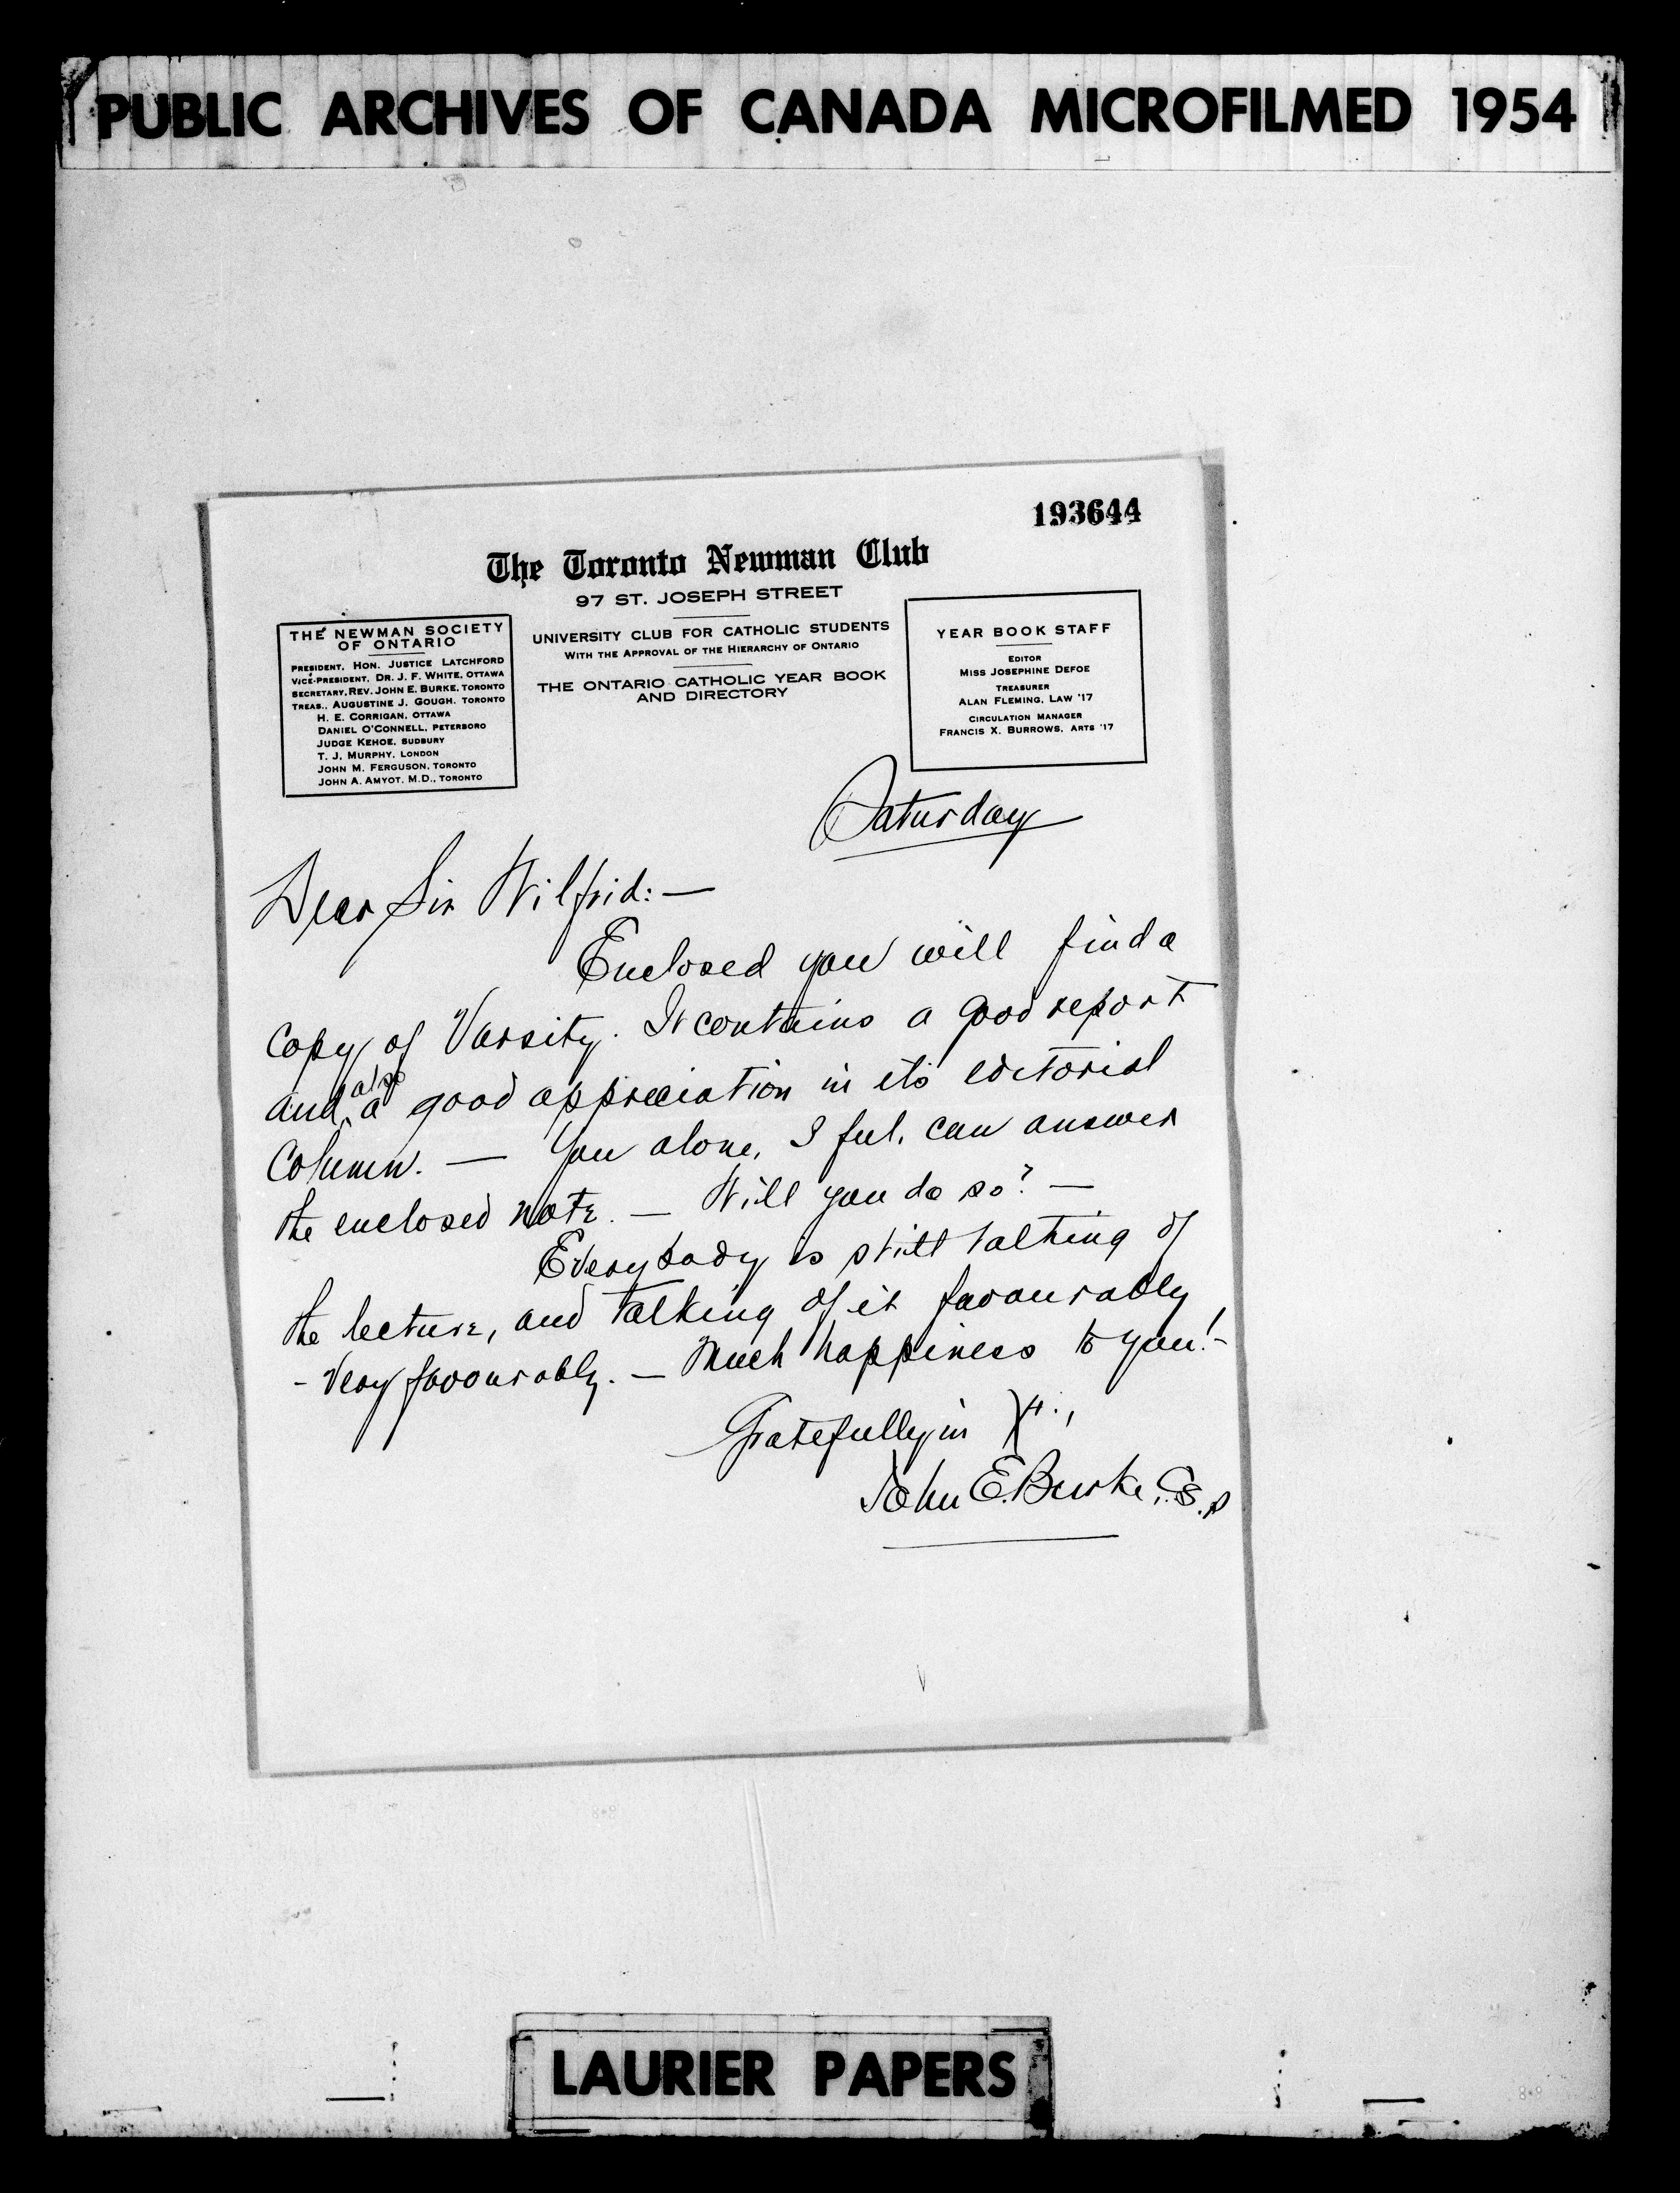 PUBLIC ARCHIVES OF CANADA MICROFILMED 1954
193644
The Toronto Newman Club
97 ST. JOSEPH STREET
UNIVERSITY CLUB FOR CATHOLIC STUDENTS
WITH THE APPROVAL OF THE HIERARCHY OF ONTARIO
THE ONTARIO CATHOLIC YEAR BOOK
AND DIRECTORY
THE NEWMAN SOCIETY
OF ONTARIO
PRESIDENT, HON. JUSTICE LATCHFORD
VICE-PRESIDENT, DR. J. F. WHITE, OTTAWA
SECRETARY, REV. JOHN E. BURKE, TORONTO
TREAS., AUGUSTINE J. GOUGH, TORONTO
H. E. CORRIGAN, OTTAWA
DANIEL O'CONNELL, PETERBORO
JUDGE KEHOE, SUDBURY
T. J. MURPHY, LONDON
JOHN M. FERGUSON, TORONTO
JOHN A. AMYOT, M.D., TORONTO
YEAR BOOK STAFF
EDITOR
MISS JOSEPHINE DEFOE
TREASURER
ALAN FLEMING, LAW '17
CIRCULATION MANAGER
FRANCIS X. BURROWS, ARTS '17
Saturday
Dear Sir Wilfrid:—
Enclosed you will find a
copy of Varsity. It contains a good report
and also a good appreciation in its editorial
column. — You alone, I feel, can answer
the enclosed note. — Will you do so? —
Everybody is still talking of
the lecture, and talking of it favourably
- very favourably. — Much happiness to you! -
Gratefully in Xt.,
John E. Burke, C.S.P
LAURIER PAPERS